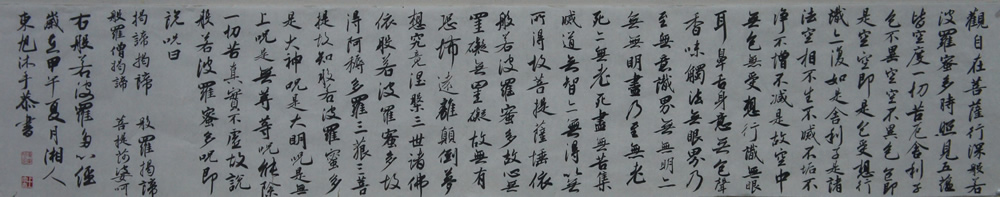 觀自在菩薩行深般若
波羅蜜多時照見五蘊
皆空度一切苦厄舍利子
色不異空空不異色色即
是空空即是色受想行
識亦復如是舍利子是諸
法空相不生不滅不垢不
淨不增不減是故空中
無色無受想行識無眼
耳鼻舌身意無色聲
香味觸法無眼界乃
至無意識界無無明亦
無無明盡乃至無老
死亦無老死盡無苦集
滅道無智亦無得以無
所得故菩提薩埵依
般若波羅蜜多故心無
罣礙無罣礙故無有
恐怖遠離顛倒夢
想究竟涅槃三世諸佛
依般若波羅蜜多故
得阿耨多羅三藐三菩
提故知般若波羅蜜多
是大神呪是大明呪是無
上呪是無等等呪能除
一切苦真實不虛故說
般若波羅蜜多呪即
說呪曰
揭諦揭諦 般羅揭諦
般羅僧揭諦 菩提
右般若波羅多心經
歲在甲午夏月湘人
東旭沐手恭書